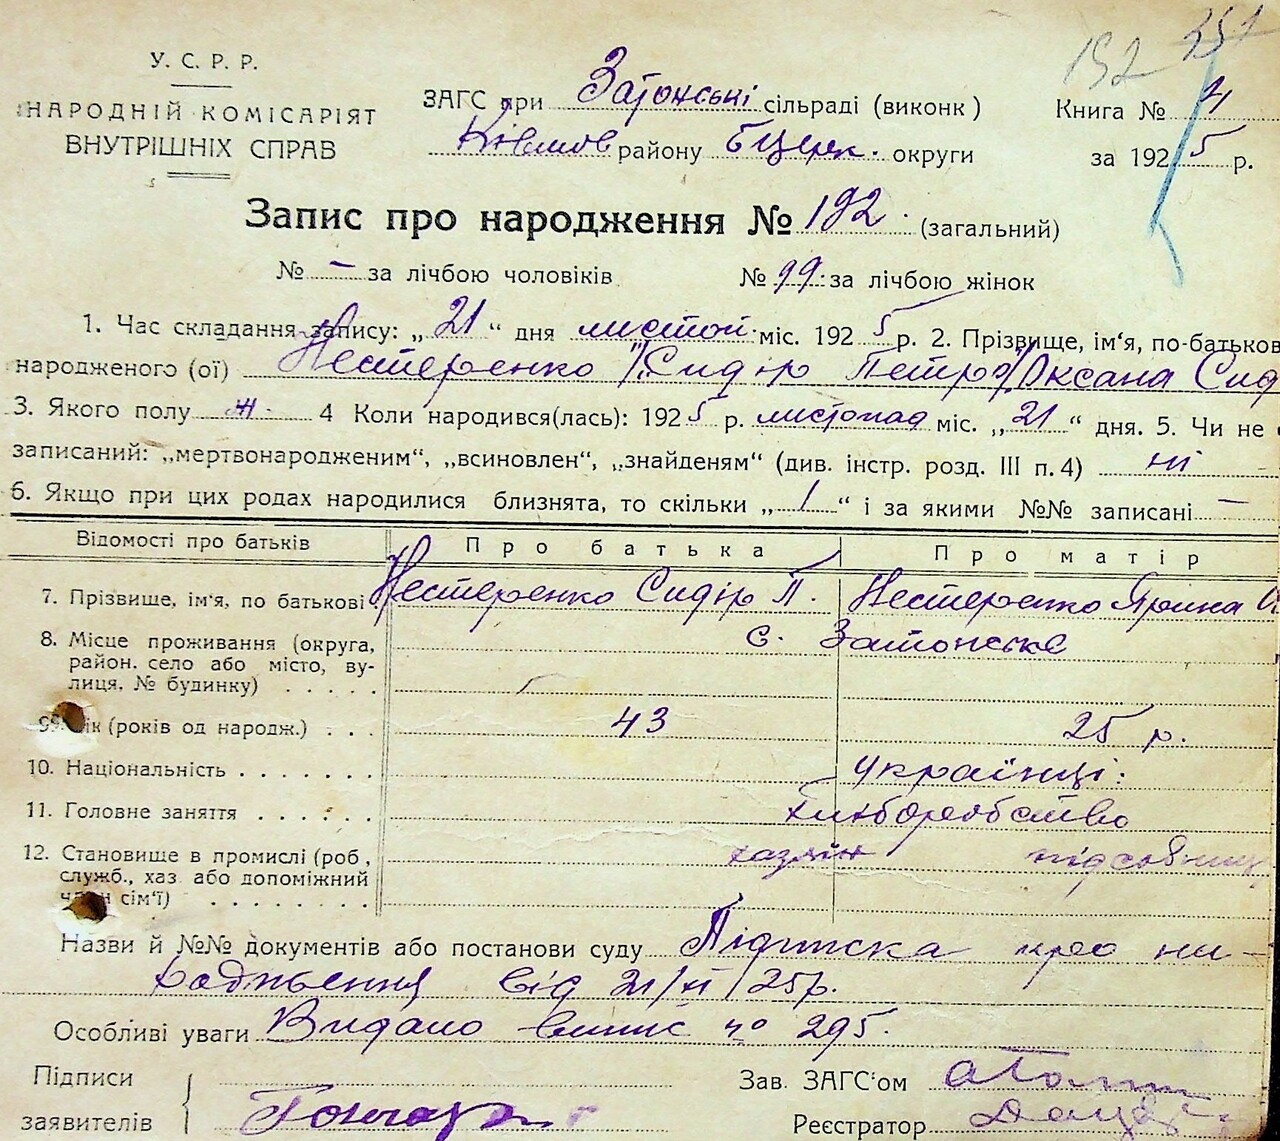 192 251
У. С. Р. Р.
НАРОДНІЙ КОМІСАРІЯТ
ВНУТРІШНІХ СПРАВ
ЗАГС при Затонські сільраді (виконк)
району БЦерк. округи
Книга № 4
за 1925 р.
Запис про народження № 192. (загальний)
№ — за лічбою чоловіків № 99. за лічбою жінок
1. Час складання запису: „21" дня листоп. міс. 1925 р. 2. Прізвище, ім'я, по-батьков
народженого (ої) Нестеренко Сидір Петров Оксана Сид
3. Якого полу ж. 4 Коли народився(лась): 1925 р. листопад міс. „21" дня. 5. Чи не
записаний: „мертвонародженим", „всиновлен", „знайденям" (див. інстр. розд. III п. 4) ні
6. Якщо при цих родах народилися близнята, то скільки „1" і за якими №№ записані —
Відомості про батьків Про батька Про матір
7. Прізвище, ім'я, по батькові Нестеренко Сидір П. Нестеренко Ярина
8. Місце проживання (округа, район. село або місто, вулиця, № будинку) с. Затонське
9. Вік (років од народж.) 43 25 р.
10. Національність українці.
11. Головне заняття хліборобство
12. Становище в промислі (роб, служб., хаз або допоміжний член сім'ї) хазяїн підсобниц
Назви й №№ документів або постанови суду Підписка про на-
родження від 21/XI/25р.
Особливі уваги Видано випис № 295.
Підписи
заявителів Гончар
Зав. ЗАГС'ом
Реєстратор